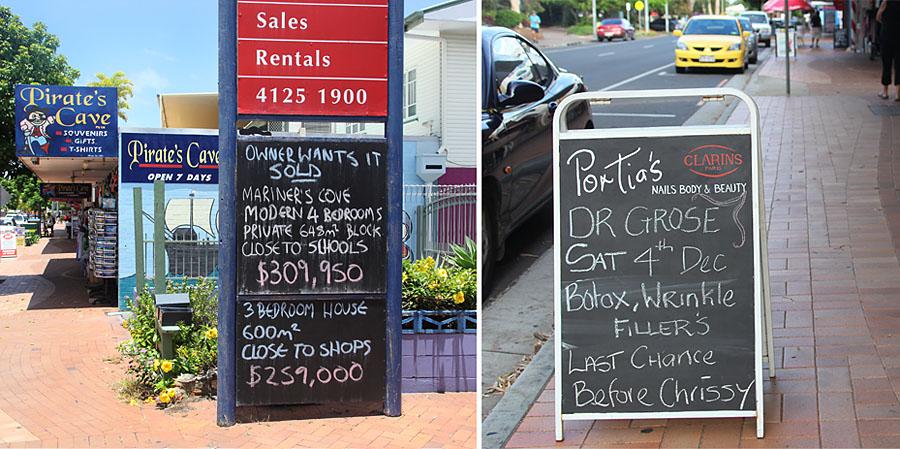 Pirate's
Cave
SOUVENIRS
GIFTS
T-SHIRTS
Pirate's Cave
OPEN 7 DAYS
Sales
Rentals
4125 1900
OWNER WANTS IT
SOLD
MARINER'S COVE
MODERN 4 BEDROOMS
PRIVATE 648m² BLOCK
CLOSE TO SCHOOLS
$309,950
3 BEDROOM HOUSE
600m²
CLOSE TO SHOPS
$259,000
PorTia's
CLARINS
PARIS
NAILS BODY & BEAUTY
DR GROSE
SAT 4th DEC
Botox, Wrinkle
FILLER'S
LAST CHANCE
Before Chrissy